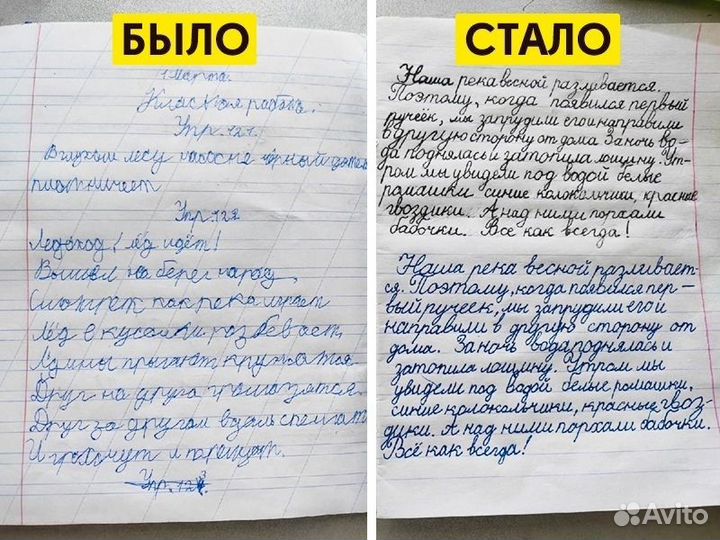 БЫЛО
1 марта.
Класная работа.
Упр. 121.
В глухом лесу на сосне чёрный дятел
плотничает
Упр. 122
Ледоход! Лёд идёт!
на берег народ
Смотрят как река играет
Лёд в кусочки разбевает,
Льдины прыгают кружатся
Друг на друга громоздятся.
Друг за другом вдаль спешат
И грохочут и трещат.
Упр. 123.
СТАЛО
Наша река весной разливается.
Поэтому, когда появился первый
ручеёк, мы запрудили его и направили
в другую сторону от дома. За ночь во-
да поднялась и затопила лощину. Ут-
ром мы увидели под водой белые
ромашки синие колокольчики, красные
гвоздики. А над ними порхали
бабочки. Всё как всегда!
Наша река весной разливает-
ся. Поэтому, когда появился пер-
вый ручеек, мы запрудили его и
направили в другую сторону от
дома. За ночь вода поднялась и
затопила лощину. Утром мы
увидели под водой белые ромашки,
синие колокольчики, красные гвоз-
дики. А над ними порхали бабочки.
Всё как всегда!
Avito